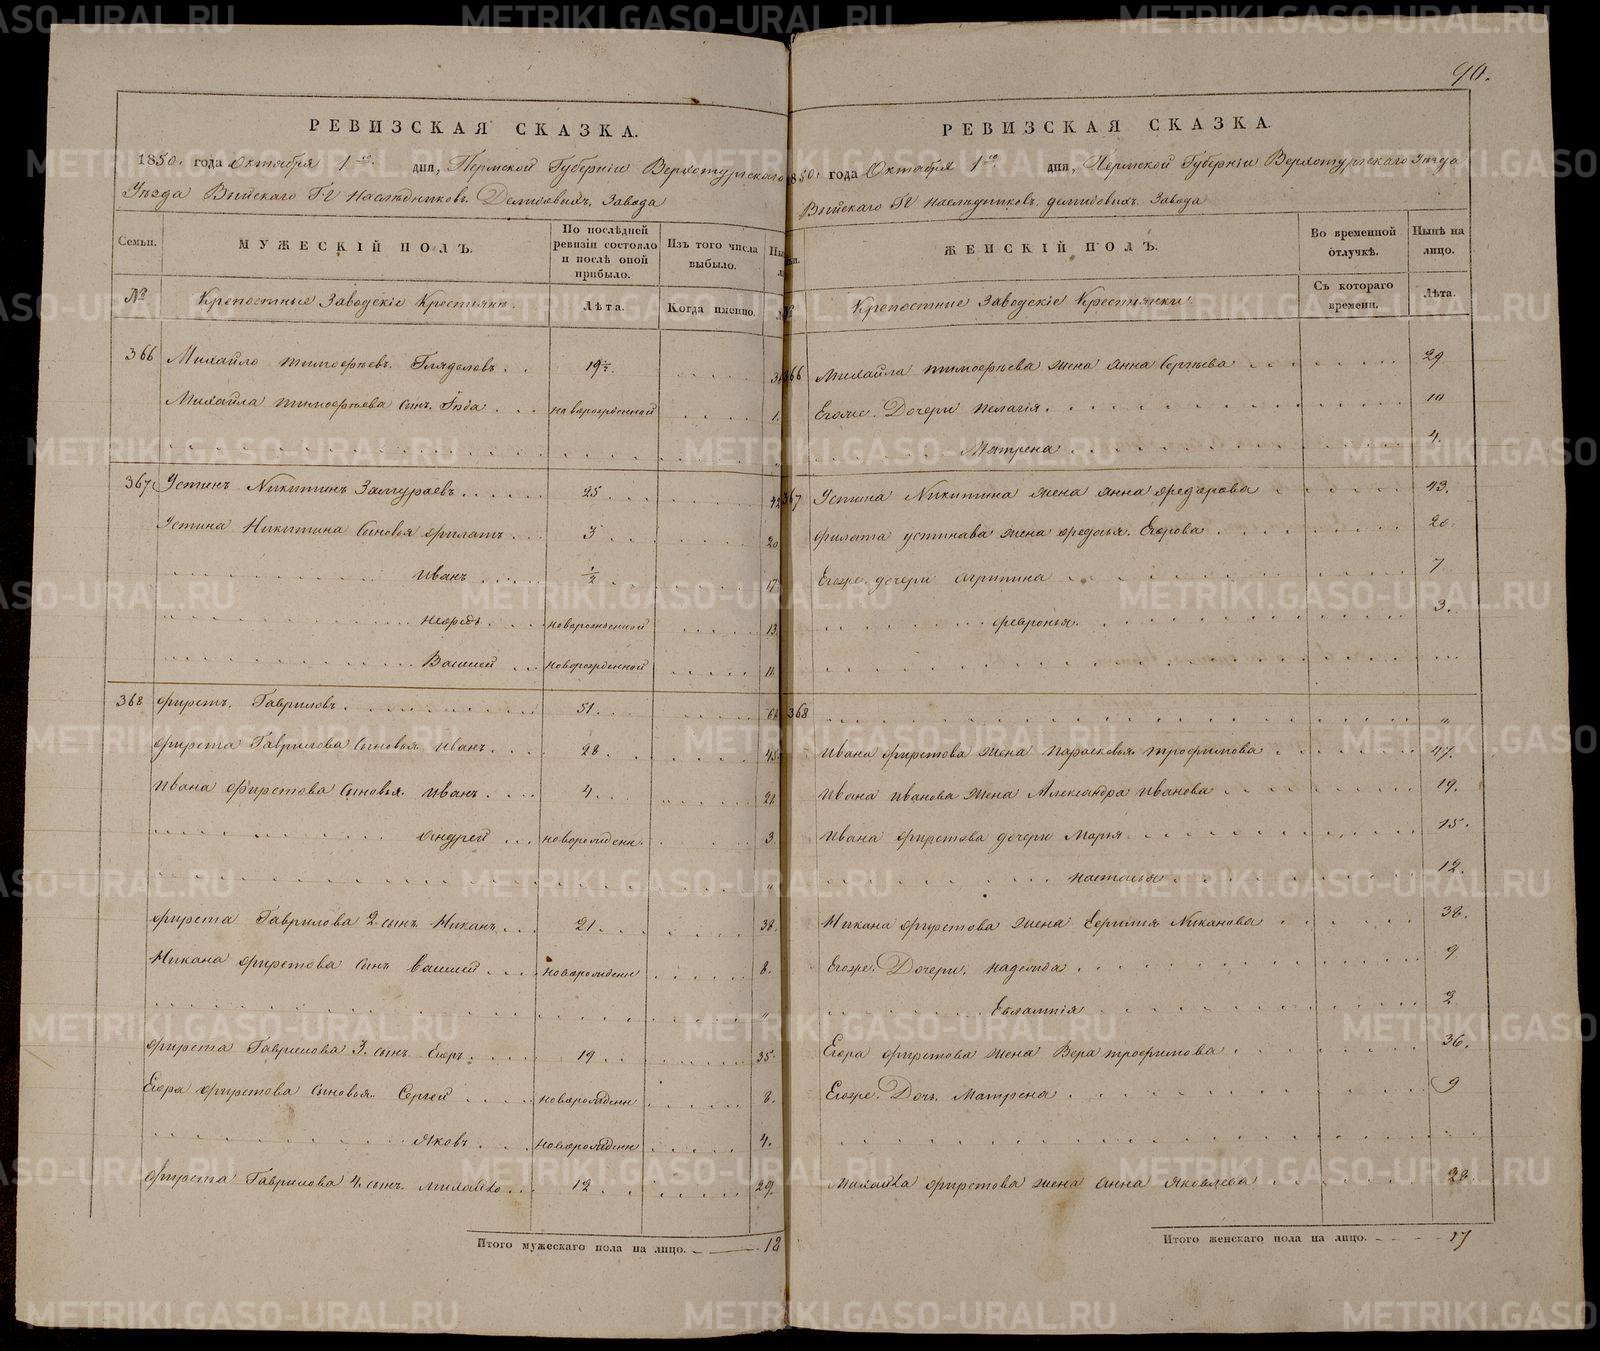 90.
РЕВИЗСКАЯ СКАЗКА.
1850. года Октября 1го. дня, Пермской Губернiи Верхотурскаго
Уѣзда Выйскаго Гг Наслѣдниковъ Демидовыхъ Завода
Семьи.
МУЖЕСКIЙ ПОЛЪ.
По послѣдней ревизiи состояло и послѣ оной прибыло.
Изъ того числа выбыло.
№
Крепостные Заводскiе Крестьяне.
Лѣта.
Когда именно.
366 Михайло тимофѣевъ Гляделовъ 19½.
Михайла тимофѣева сынъ новорожденной 1.
367 Устинъ Никитинъ 25 42
Устина Никитина сыновья филатъ 3 20
Иванъ ½ 17
нефедъ новорожденной 13
Василей новорожденной 11
368 фирстъ Гавриловъ 51
фирста Гаврилова сыновья Иванъ 28 45
Ивана фирстова сыновья Иванъ 4 21
Андрей новорожден. 3
фирста Гаврилова 2 сынъ Никанъ 21 38
Никана фирстова сынъ Василей новорожден 8.
фирста Гаврилова 3. сынъ Егоръ 19 35
Егора фирстова сыновья Сергей новорожден 8.
Яковъ новорожден 4.
фирста Гаврилова 4. сынъ Михайло 12 29.
Итого мужескаго пола на лицо. 18
РЕВИЗСКАЯ СКАЗКА.
1850 года Октября 1го дня, Пермской Губернiи Верхотурскаго Уѣзда
Выйскаго Гг наслѣдниковъ демидовыхъ Завода
ЖЕНСКIЙ ПОЛЪ.
Во временной отлучкѣ.
Нынѣ на лицо.
Крепостные Заводскiе Крестьянки.
Съ котораго времени.
Лѣта.
366 Михайла тимофѣева жена Анна Сергѣева 29
Егоже Дочери пелагiя 10
Матрена 4.
367 Устина Никитина жена Анна федорова 43.
филата устинава жена федосья Егорова 20.
Егоже дочери Агрипина 7
февронья. 3.
368 "
Ивана фирстова жена Парасковья трофимова 47.
Ивана Иванова жена Александра Иванова 19.
Ивана фирстова дочери Марья 15.
настасья 12.
Никана фирстова жена Ефимия Никанова 38.
Егоже Дочери надежда 9
Евлампiя 2
Егора фирстова жена Вера трофимова 36.
Егоже Дочь Матрена 9
Михайла фирстова жена Анна Яковлева 28.
Итого женскаго пола на лицо. 17
METRIKI.GASO-URAL.RU